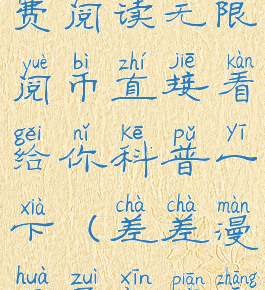 费阅读无限
yuè bì zhí jiē kàn
阅币直接看
gěi nǐ kē pǔ yī
给你科普一
xià chà chà màn
下（差差漫
huà zuì xīn piān zhāng